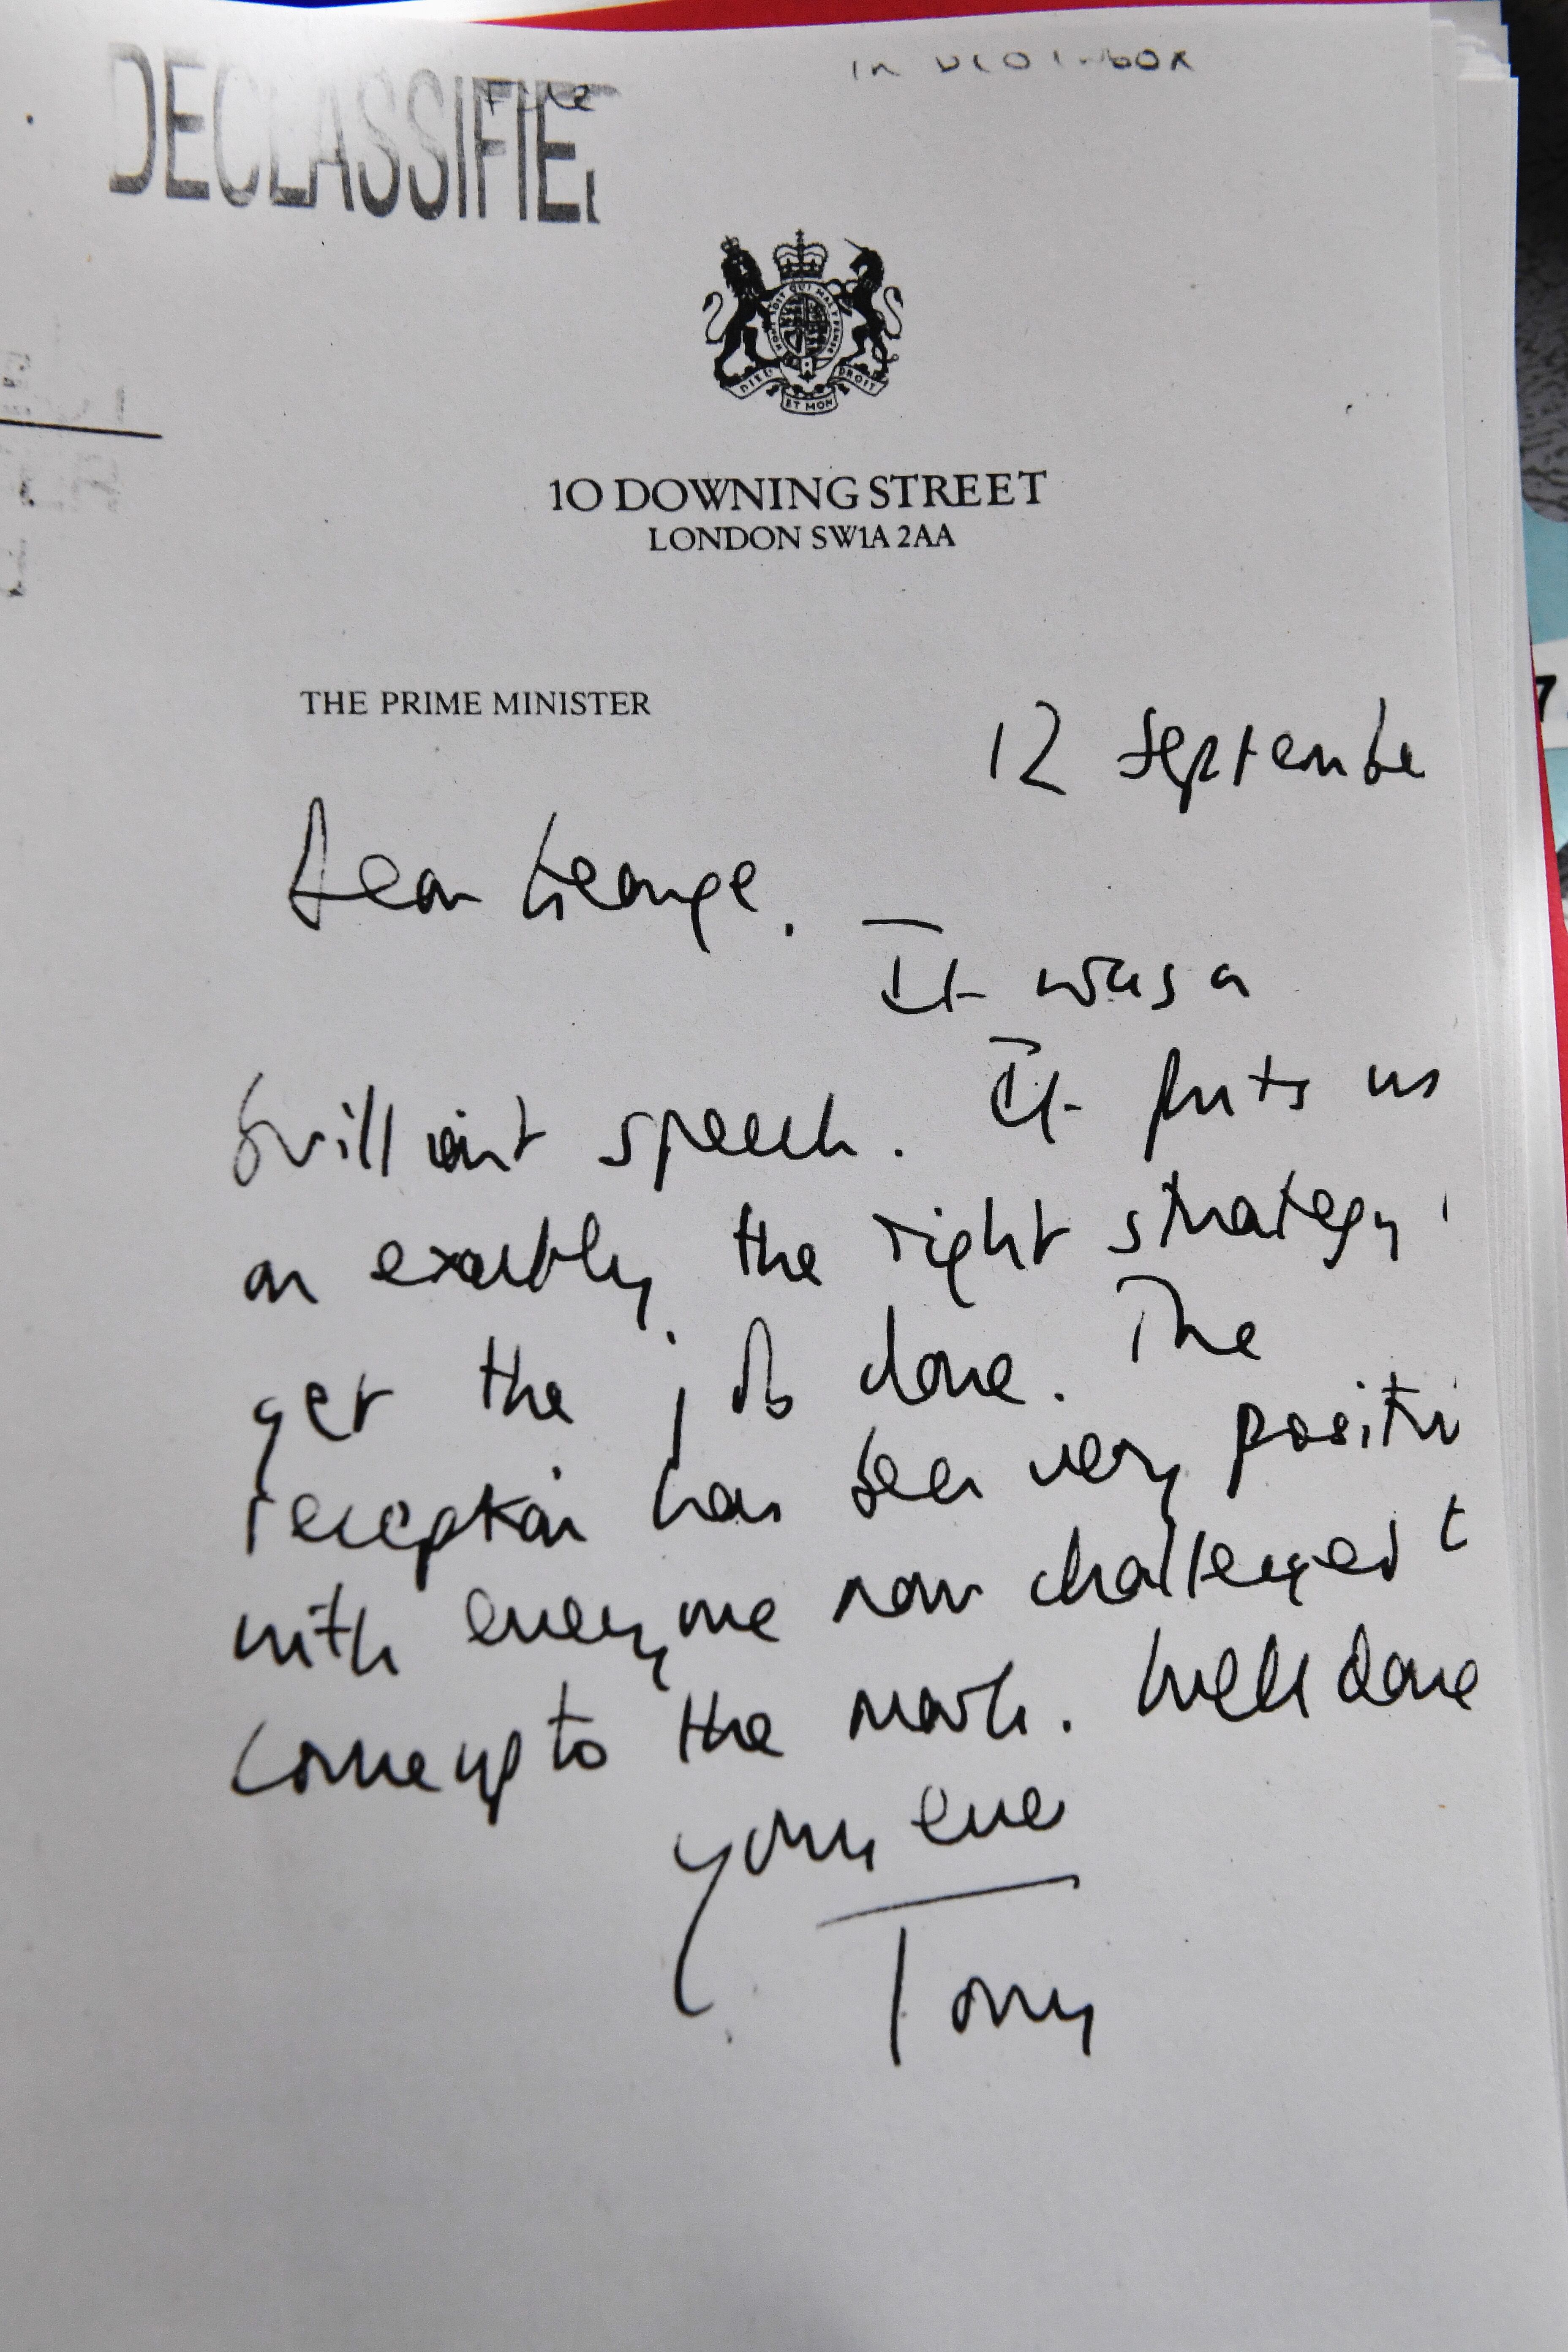 DECLASSIFIE
File
10 DOWNING STREET
LONDON SW1A 2AA
THE PRIME MINISTER
12 Septembe
Dear George.
It was a
brilliant speech. It puts us
on exactly the right strategy
get the job done. The
reception has been very positi
with everyone now challenged t
come up to the mark. Well done
Yours ever
Tony
DIEU ET MON DROIT